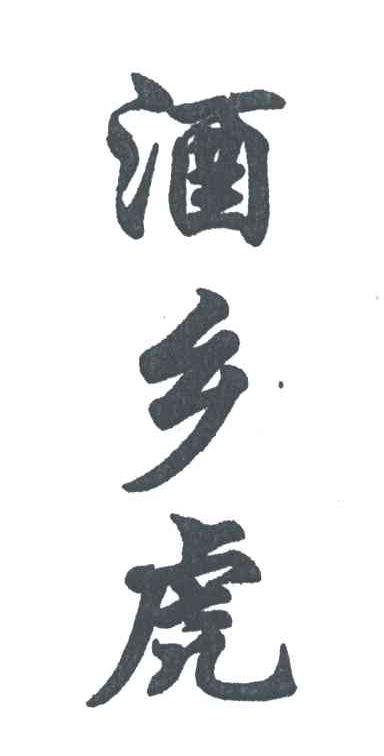 酒乡虎